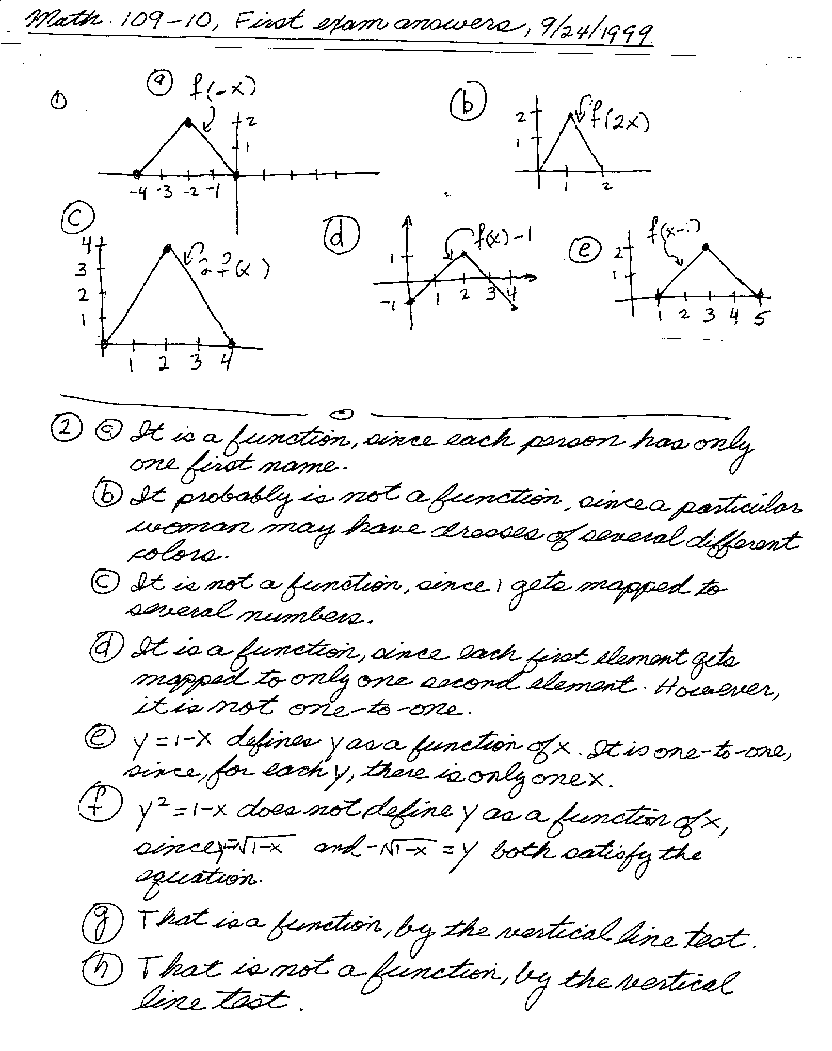 Math 109-10, First exam answers, 9/24/1999
① ⓐ f(-x)
2
1
-4 -3 -2 -1
ⓑ f(2x)
2
1
1 2
ⓒ 2 f(x)
4
3
2
1
1 2 3 4
ⓓ f(x)-1
1
-1
1 2 3 4
ⓔ f(x-
2
1
1 2 3 4 5
② ⓐ It is a function, since each person has only
one first name.
ⓑ It probably is not a function, since a particular
woman may have dresses of several different
colors.
ⓒ It is not a function, since 1 gets mapped to
several numbers.
ⓓ It is a function, since each first element gets
mapped to only one second element. However,
it is not one-to-one.
ⓔ y=1-x defines y as a function of x. It is one-to-one,
since, for each y, there is only one x.
ⓕ y²=1-x does not define y as a function of x,
since y=√1-x and -√1-x = y both satisfy the
equation.
ⓖ That is a function, by the vertical line test.
ⓗ That is not a function, by the vertical
line test.